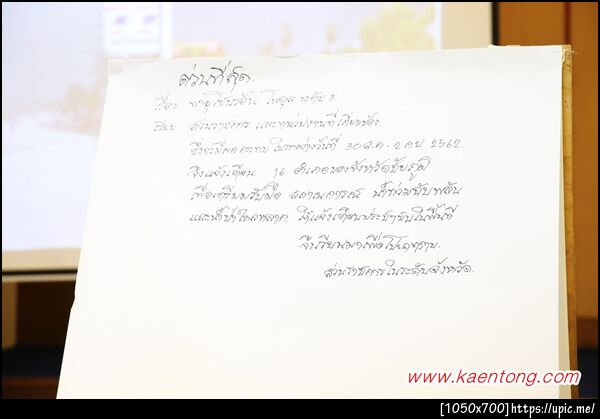 ด่วนที่สุด.
เรื่อง พายุโซนร้อน โพดุล ระดับ 3
เรียน ส่วนราชการ และหน่วยงานที่เกี่ยวข้อง
ซึ่งจะมีผลกระทบ ในระหว่างวันที่ 30 ส.ค - 2 ก.ย. 2562
จึงแจ้งเตือน 16 อำเภอของจังหวัดชัยภูมิ
เพื่อเตรียมรับมือ สถานการณ์ น้ำท่วมฉับพลัน
และน้ำป่าไหลหลาก ให้แจ้งเตือนประชาชนในพื้นที่
จึงเรียนมาเพื่อโปรดทราบ
ส่วนราชการในระดับจังหวัด.
www.kaentong.com
[1050x700]https://upic.me/